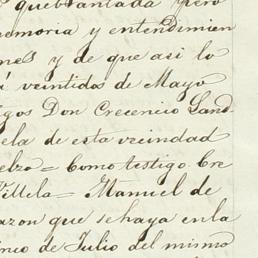 quebrantada pero
memoria y entendimien
y de que asi lo
á veintidos de Mayo
Don Crecencio Sand
ela de esta vecindad
= Como testigo Cre
Villela = Manuel de
azon que se haya en la
inco de Julio del mismo